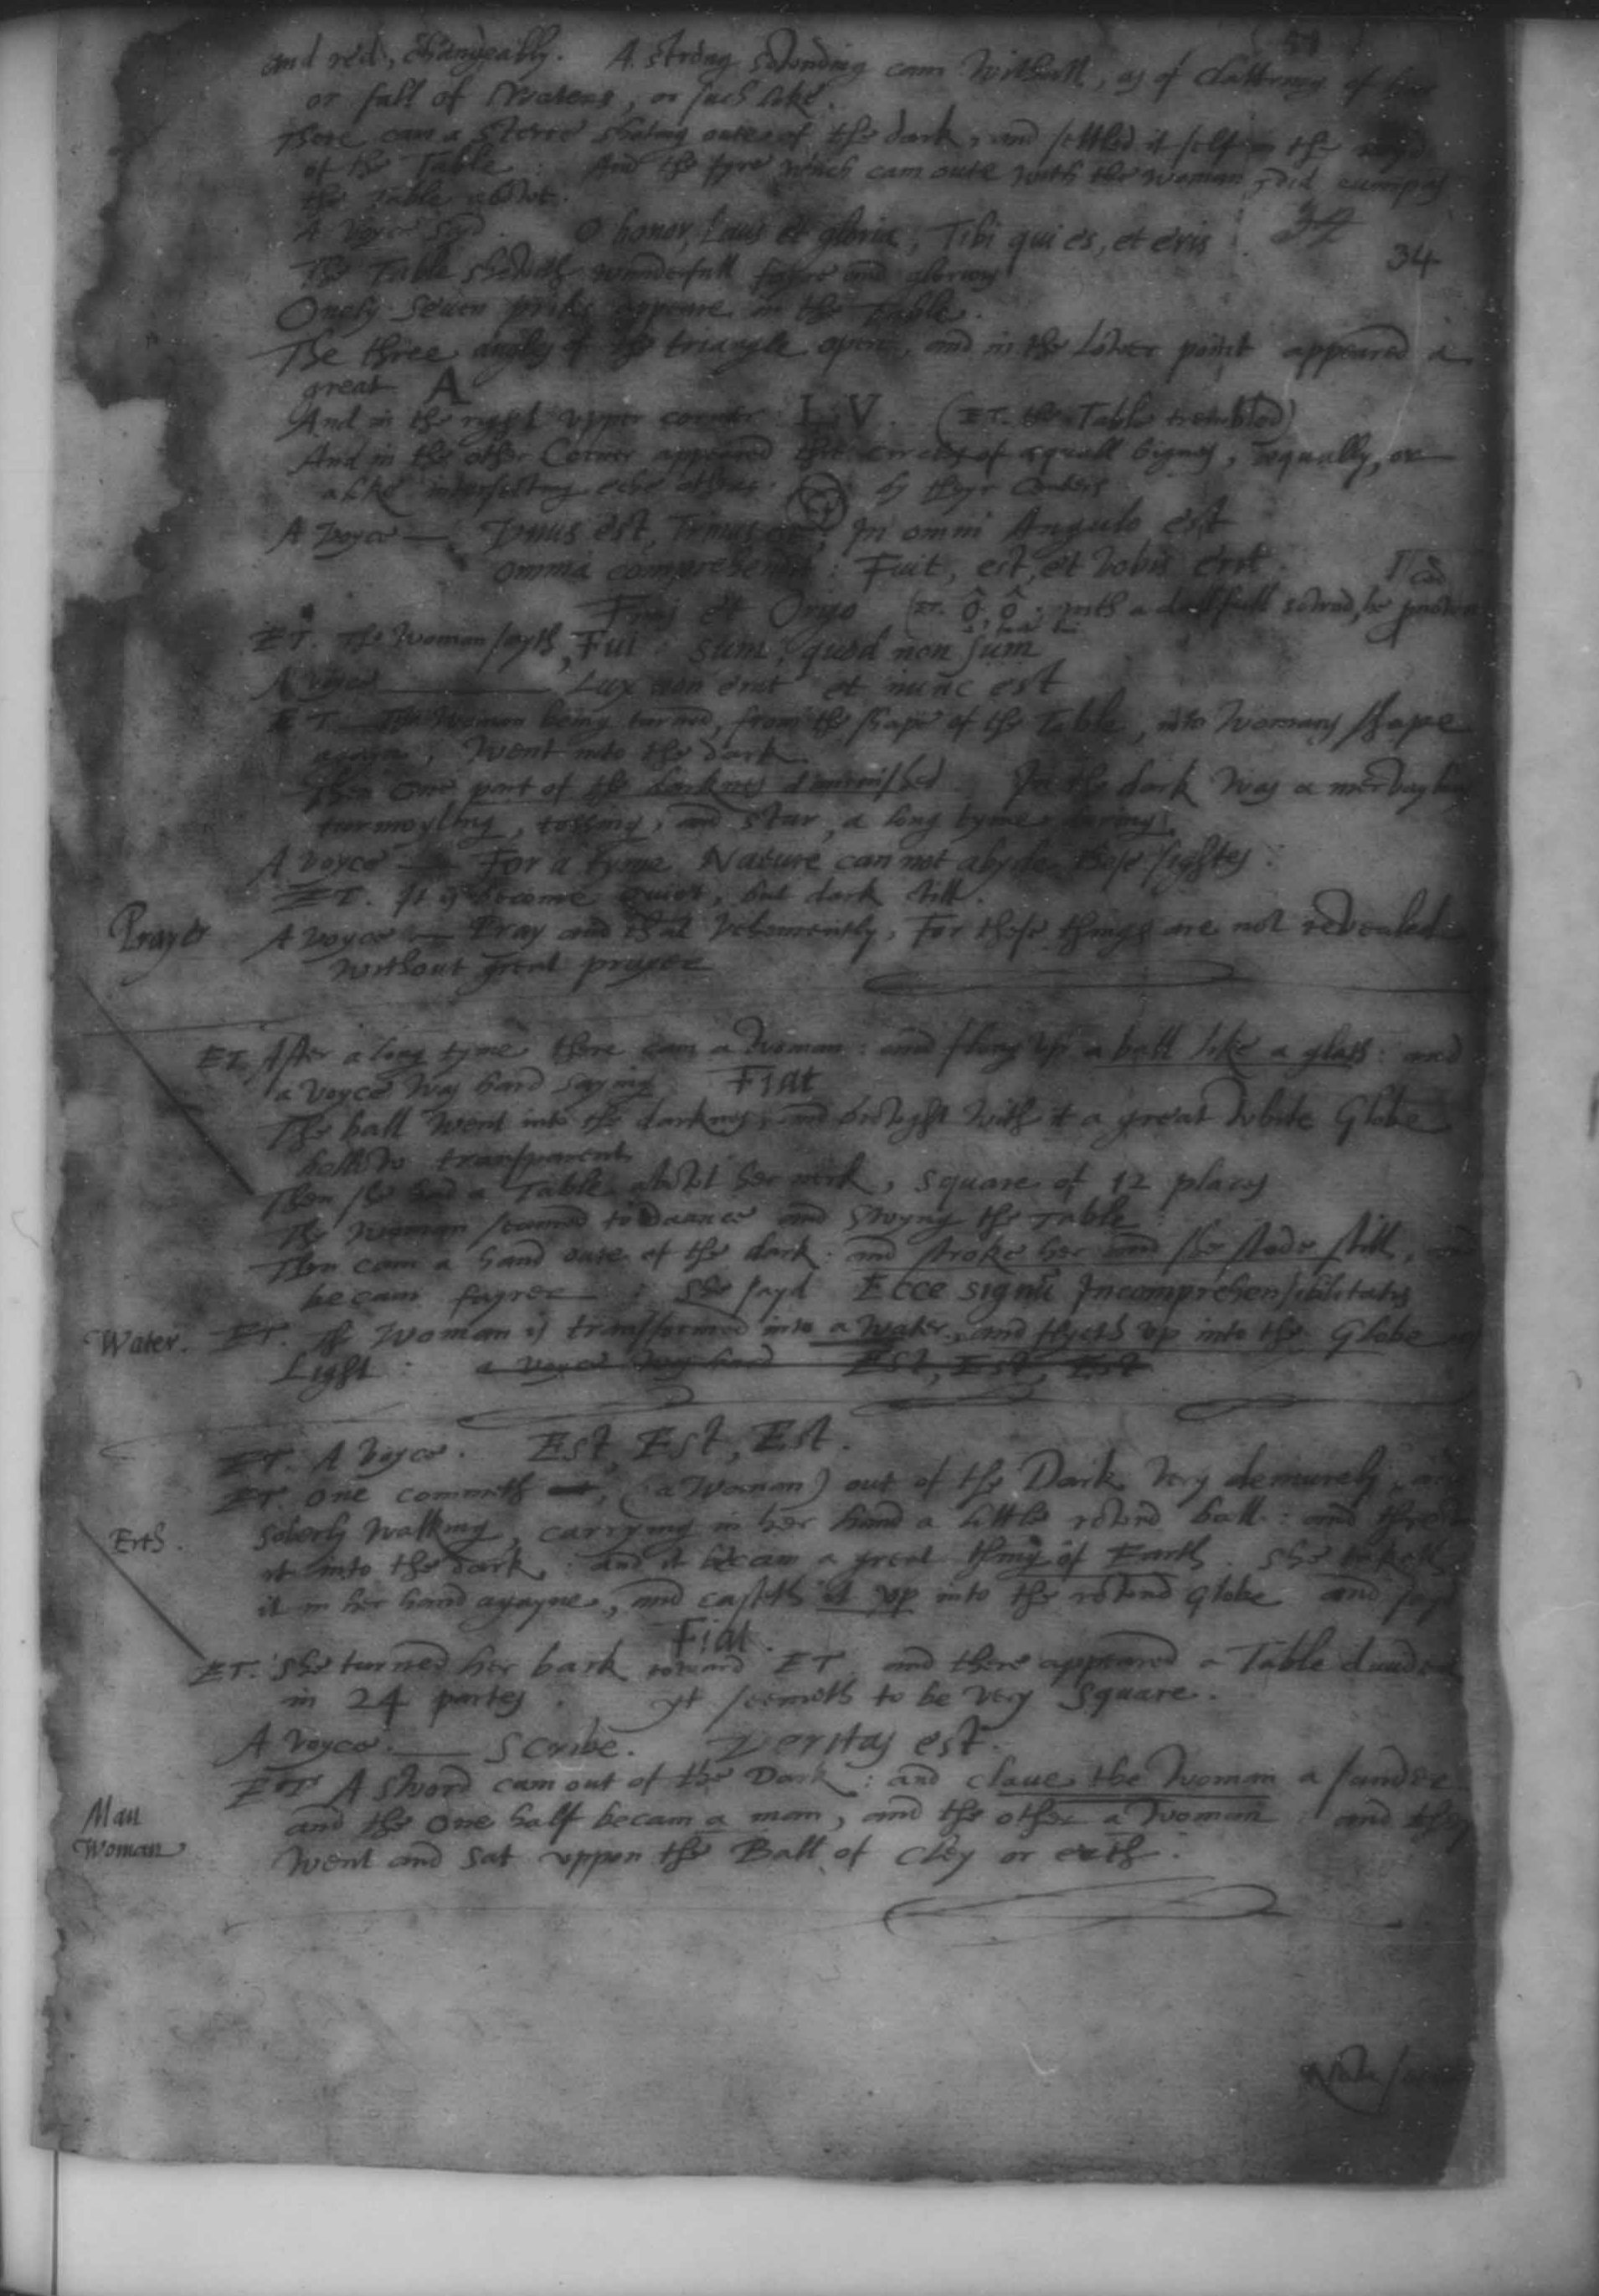 and red, chaungeably. A strong sownding cam withall, as of clattring of
or fall of Waters, or such like.
There cam a sterre shoting oute of the dark, and settled it self in the
of the Table : And the fyre which cam oute with the woman, did cumpas
the Table abowt.
A voyce sayd . O honor, Laus et gloria, Tibi qui es, et eris . 34
The Table sheweth wonderfull fayre and glorious
Onely seven priks appeare in the Table.
The three angles of the triangle open, and in the lower point appeared a
great A
And in the right upper corner L V . (ET. the Table trembled)
And in the other Corner appeared thre cercles of aequall bignes, aequally, or
alike intersecting eche other by theyr centers
A voyce — Unus est, Trinus est, In omni Angulo est
Omnia comprehendit : Fuit, est, et vobis erit.
Finis et Origo (ET. ô, ô, with a dolefull sownd, he
ET. The Woman sayth, Fui : sum, quod non sum
A voyce — Lux non erat et nunc est
ET. The Woman being turned, from the shape of the Table, into Womans shape
agayn, Went into the dark.
Then One part of the darknes diminished. In the dark was a mervaylous
turmoyling, tossing, and stur, a long tyme during.
A voyce — For a tyme Nature can not abyde these sightes.
ET. It is become quiet, but dark still.
Prayer A voyce — Pray and that vehemently, For these things are not revealed
without great prayer
ET. After a long tyme there cam a Woman : and flung up a ball like a glass : and
a voyce was hard saying Fiat
The ball went into the darknes, and browght with it a great white Globe
hollow transparent
Then she had a Table abowt her neck, square of 12 places
The Woman seamed to daunce and swyng the Table :
Then cam a hand oute of the dark : and stroke her and she stode still, and
becam fayrer : She sayd Ecce signū Incomprehensibilitatis
Water. ET. The Woman is transformed into a water, and flyeth up into the Globe of
Light : a voyce was hard Est, Est, Est
ET. A voyce . Est, Est, Est.
ET. One commeth (a Woman) out of the Dark very demurely, and
Erth. Soberly walking, carrying in her hand a little rownd ball : and threw
it into the dark, and it becam a great thing of Earth. She taketh
it in her hand agayne, and casteth it up into the rownd Globe and sayd
Fiat.
ET. She turned her back toward ET and there appeared a Table divided
in 24 partes . yt seemeth to be very Square.
A voyce. — Scribe. Veritas est.
ET A sword cam out of the Dark : and clave the Woman a sunder
Man and the one half becam a man, and the other a Woman : and they
Woman went and sat uppon the Ball of Cley or erth.